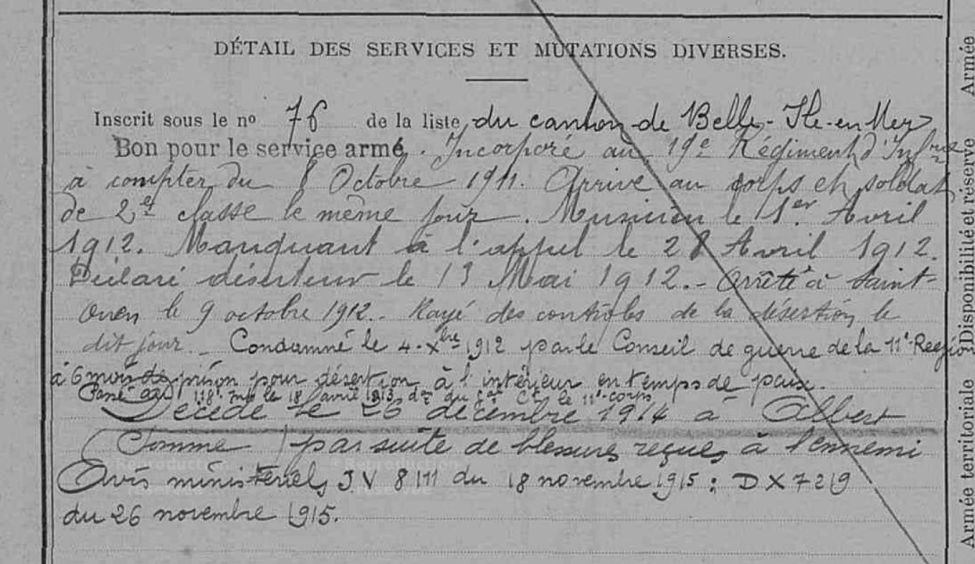 DÉTAIL DES SERVICES ET MUTATIONS DIVERSES.
Inscrit sous le nº 76 de la liste du canton de Belle-Ile-en-Mer
Bon pour le service armé. Incorporé au 19e Régiment d'Infrie
à compter du 8 Octobre 1911. Arrivé au corps et soldat
de 2e classe le même jour. Musicien le 1er Avril
1912. Manquant à l'appel le 28 Avril 1912.
Déclaré déserteur le 13 Mai 1912.- Arrêté à Saint-
Ouen le 9 octobre 1912.- Rayé des contrôles de la désertion le
dit jour. - Condamné le 4-Xbre 1912 par le Conseil de guerre de la 11e Région
à 6 mois de prison pour désertion à l'intérieur en temps de paix.
Passé au 118e le 18 avril 1913 du le 11e corps.
Décédé le 26 décembre 1914 à Albert
(Somme) par suite de blessures reçues à l'ennemi
Avis ministériels JV 8111 du 18 novembre 1915; DX 7219
du 26 novembre 1915.
Armée
Disponibilité et réserve
Armée territoriale